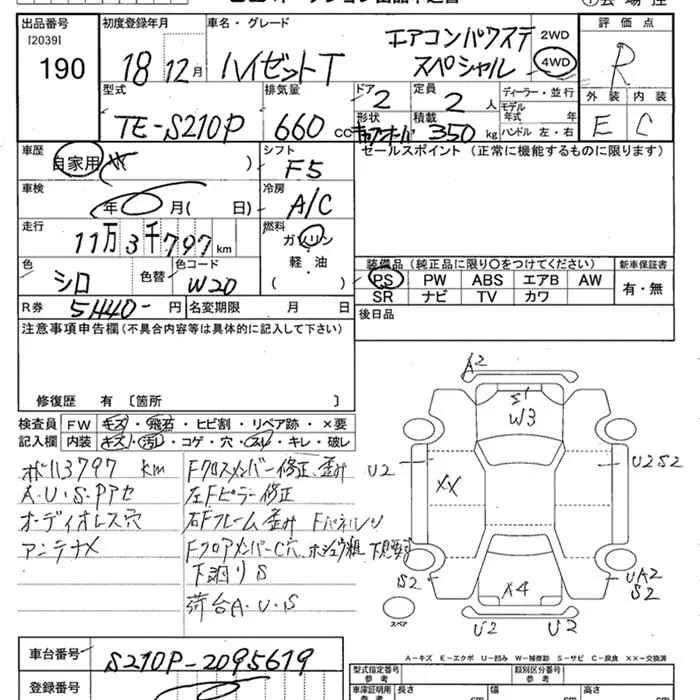 出品番号
[2039]
190
初度登録年月
18 12月
車名・グレード
ハイゼットT
エアコンパワステ
スペシャル
2WD
4WD
評価点
R
外装 内装
E C
型式
TE-S210P
排気量
660 cc
ドア
2
定員
2 人
形状
積載
350 kg
ディーラー・並行
モデル
年式 年
ハンドル 左・右
車歴
自家用
)
シフト
F5
セールスポイント (正常に機能するものに限ります)
車検
年 月( 日)
冷房
A/C
走行
11万3千797km
燃料
ガソリン
軽・油
( )
色
シロ
色替
色コード
W20
装備品 (純正品に限り○をつけてください)
新車保証書
PS PW ABS エアB AW
SR ナビ TV カワ
有・無
R券
5440-円
名変期限 月 日
後日品
注意事項申告欄 (不具合内容等は具体的に記入して下さい)
修復歴 有 〔箇所 〕
検査員
記入欄
FW キズ・飛石・ヒビ割・リペア跡・×要
内装 キズ・汚レ・コゲ・穴・スレ・キレ・破レ
ボ113797 km
A・U・S・Pアセ
オーディオレス穴
アンテナX
Fクロスメンバー修正、歪み
左Fピラー修正
右Fフレーム歪み FパネルU
下廻りS
荷台A・U・S
A2
S1
W3
U2
XX
U2S2
S2
X4
UA2
S2
U2
U2
スペア
A-キズ E-エクボ U-凹み W-補修跡 S-サビ C-腐食 XX-交換済
車台番号
S210P-2095619
登録番号
型式指定番号
参考
類別区分番号
車庫証明用
参考
長さ
幅
高さ